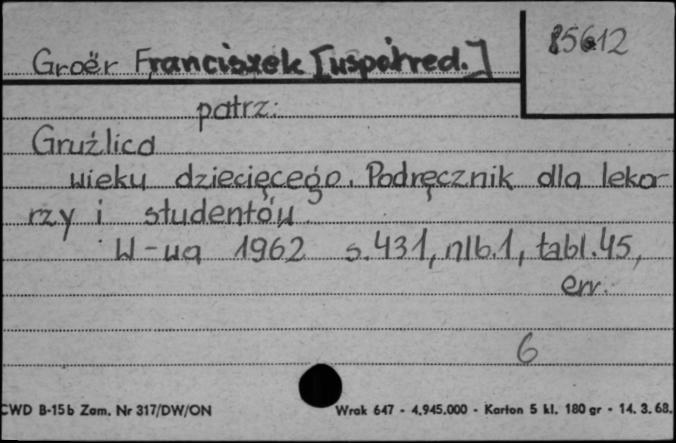 85612
Groër Franciszek [uspółred.]
patrz:
Gruźlica
wieku dziecięcego. Podręcznik dla leka-
rzy i studentów
W-wa 1962 s.431, nlb.1, tabl.45,
err.
6
CWD B-15b Zam. Nr 317/DW/ON Wrak 647 - 4.945.000 - Karton 5 kl. 180 gr - 14. 3. 68.